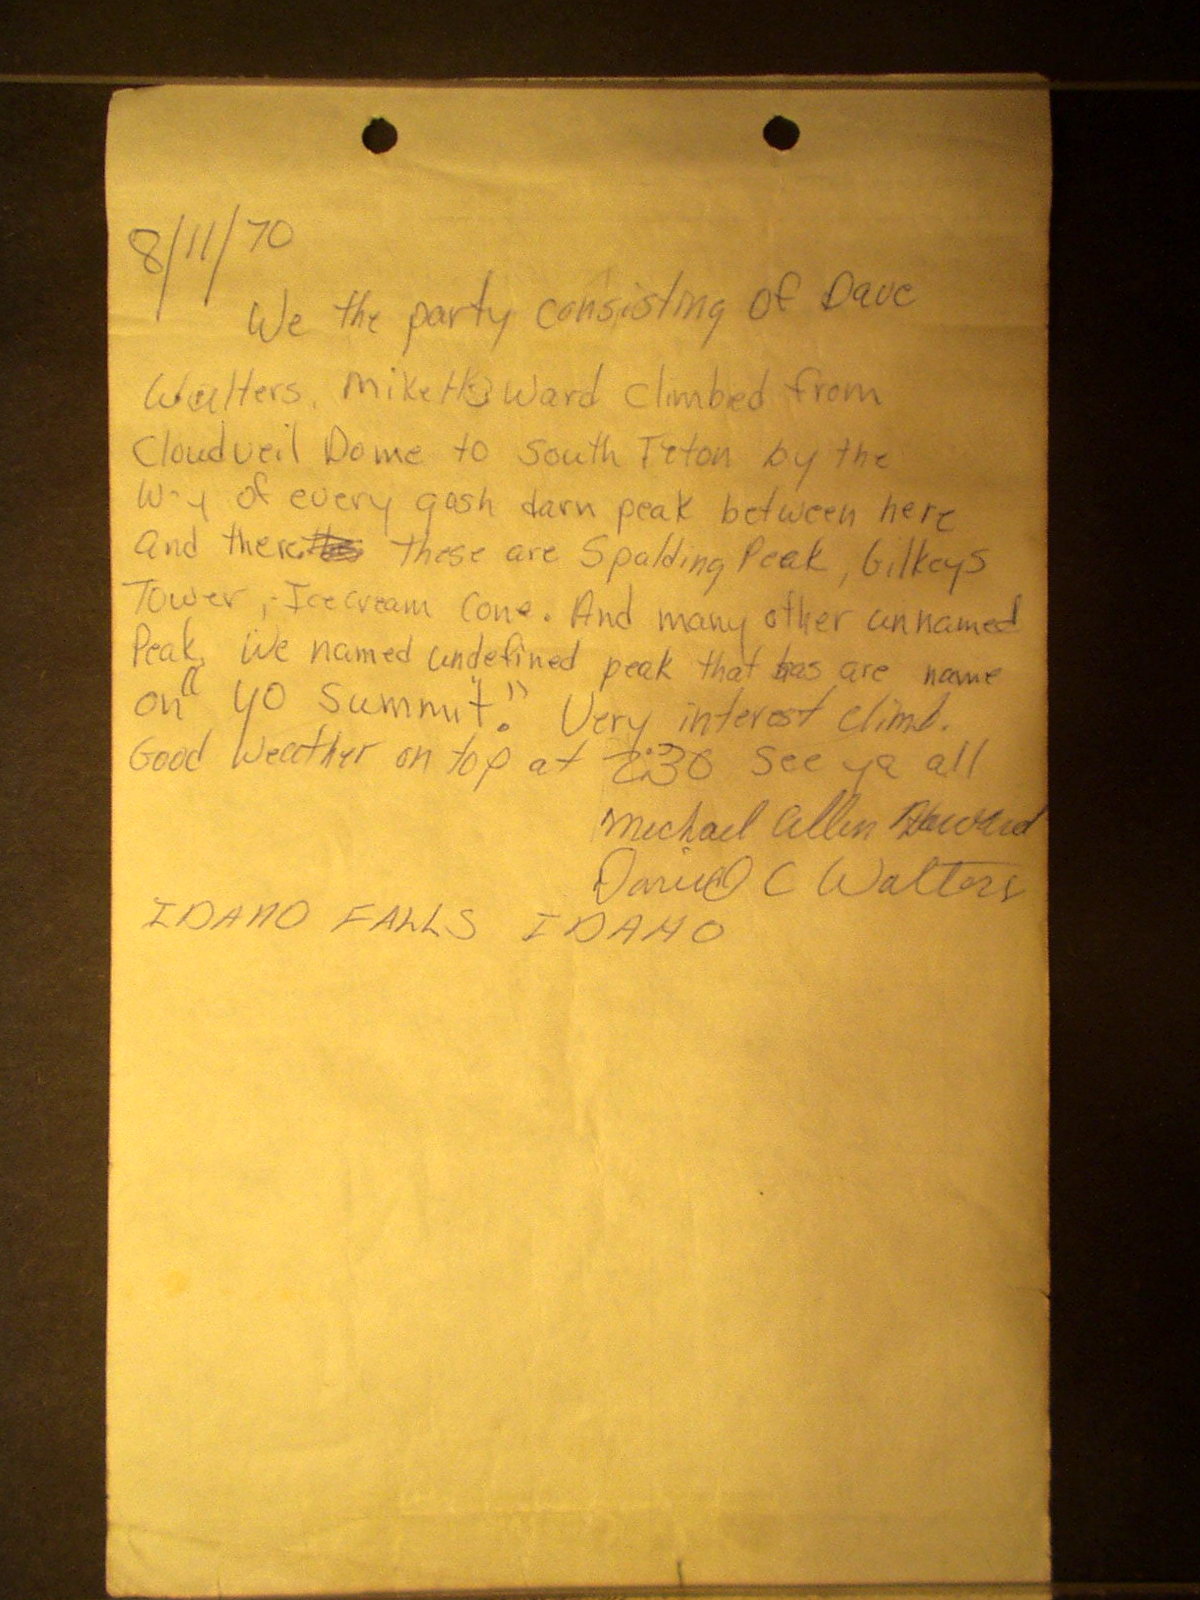 8/11/70
We the party consisting of Dave
Walters, Mike Howard climbed from
Cloudveil Dome to South Teton by the
way of every gosh darn peak between here
and there. these are Spalding Peak, Gilkeys
Tower, Icecream Cone. And many other unnamed
Peak. We named undefined peak that has are name
on "YO Summit." Very interest climb.
Good Weather on top at 2:30 See ya all
Michael Allen Howard
David C Walters
IDAHO FALLS IDAHO